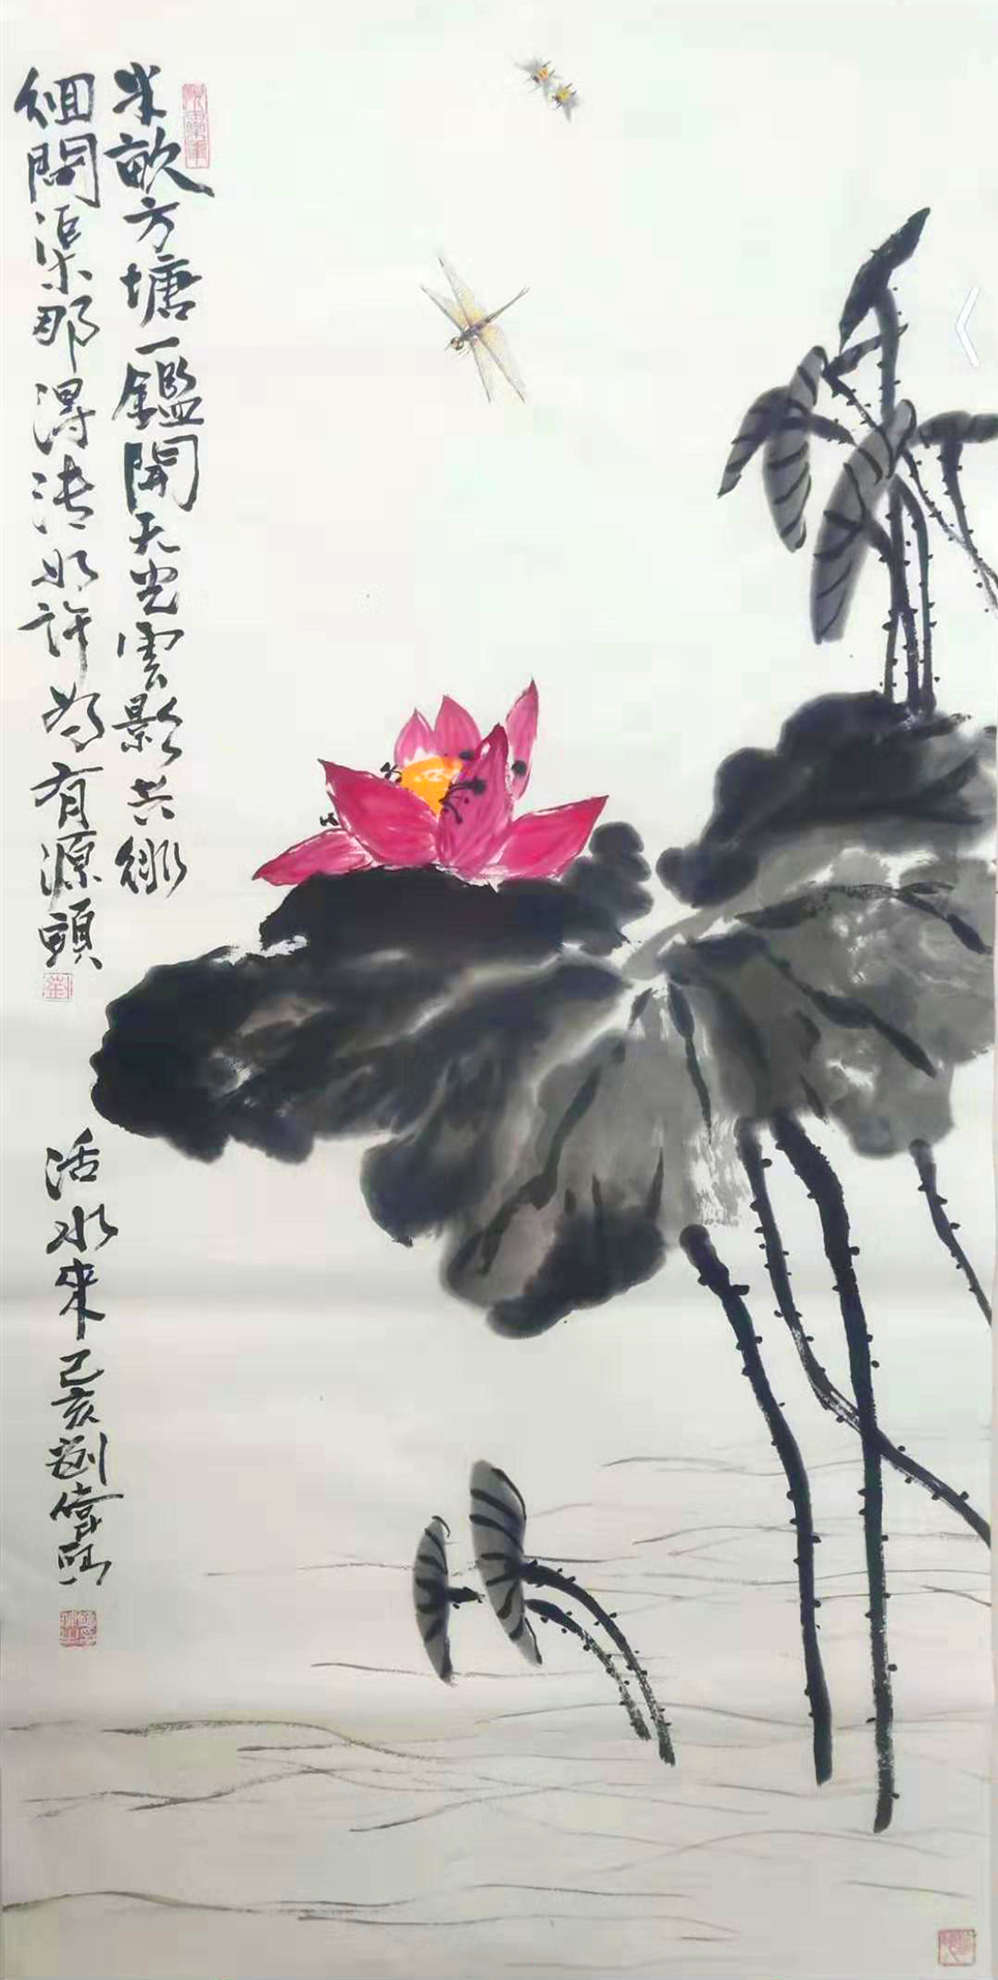 半畝方塘一鑑開天光雲影共徘
徊問渠那得清如許為有源頭
活水來己亥劉偉